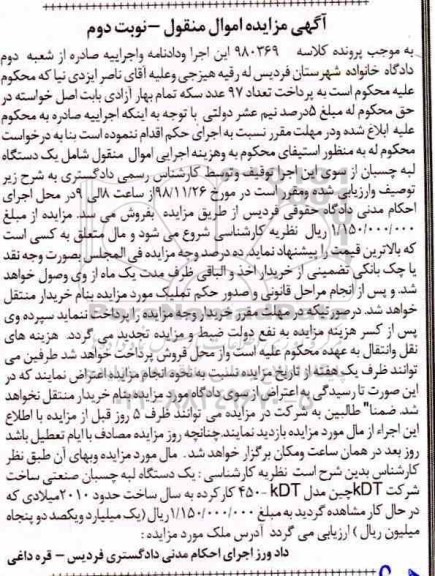 آگهی مزایده اموال منقول – نوبت دوم
به موجب پرونده کلاسه ۹۸۰۳۶۹ این اجرا ودادنامه واجراییه صادره از شعبه دوم
دادگاه خانواده شهرستان فردیس له رقیه هیزجی وعلیه آقای ناصر ایزدی نیا که محکوم
علیه محکوم است به پرداخت تعداد ۹۷ عدد سکه تمام بهار آزادی بابت اصل خواسته در
حق محکوم له مبلغ ۵درصد نیم عشر دولتی با توجه به اینکه اجراییه صادره به محکوم
علیه ابلاغ شده ودر مهلت مقرر نسبت به اجرای حکم اقدام ننموده است بنا به درخواست
محکوم له به منظور استیفای محکوم به وهزینه اجرایی اموال منقول شامل یک دستگاه
لبه چسبان از سوی این اجرا توقیف وتوسط کارشناس رسمی دادگستری به شرح زیر
توصیف وارزیابی شده ومقرر است در مورخ ۹۸/۱۱/۲۶از ساعت ۸الی ۹در محل اجرای
احکام مدنی دادگاه حقوقی فردیس از طریق مزایده بفروش می رسد. مزایده از مبلغ
۱/۱۵۰/۰۰۰/۰۰۰ ریال نظریه کارشناسی شروع می شود و مال متعلق به کسی است
که بالاترین قیمت را پیشنهاد نماید. ده درصد وجه مزایده فی المجلس بصورت وجه نقد
یا چک بانکی تضمینی از خریدار اخذ و الباقی ظرف مدت یک ماه از وی وصول خواهد
شد. و پس از انجام مراحل قانونی و صدور حکم تملیک مورد مزایده بنام خریدار منتقل
خواهد شد. درصورتیکه در مهلت مقرر خریدار وجه مزایده را پرداخت ننماید سپرده وی
پس از کسر هزینه مزایده به نفع دولت ضبط و مزایده تجدید می گردد. هزینه های
نقل وانتقال به عهده محکوم علیه است واز محل فروش پرداخت خواهد شد طرفین می
توانند ظرف یک هفته از تاریخ مزایده نسبت به نحوه انجام مزایده اعتراض نمایند که در
این صورت تا رسیدگی به اعتراض از سوی دادگاه مورد مزایده بنام خریدار منتقل نخواهد
شد. ضمنا" طالبین به شرکت در مزایده می توانند ظرف ۵ روز قبل از مزایده با اطلاع
این اجراء از مال مورد مزایده بازدید نمایند.چنانچه روز مزایده مصادف با ایام تعطیل باشد
روز بعد در همان ساعت ومکان برگزار خواهد شد. مال مورد مزایده وبهای آن طبق نظر
کارشناس بدین شرح است نظریه کارشناسی : یک دستگاه لبه چسبان صنعتی ساخت
شرکت kDTچین مدل kDT -۴۵۰ کارکرده به سال ساخت حدود ۲۰۱۰میلادی که
در حال کار مشاهده گردید به مبلغ ۱/۱۵۰/۰۰۰/۰۰۰ریال (یک میلیارد ویکصد دو پنجاه
میلیون ریال ) ارزیابی می گردد آدرس ملک مورد مزایده :
داد ورز اجرای احکام مدنی دادگستری فردیس – قره داغی